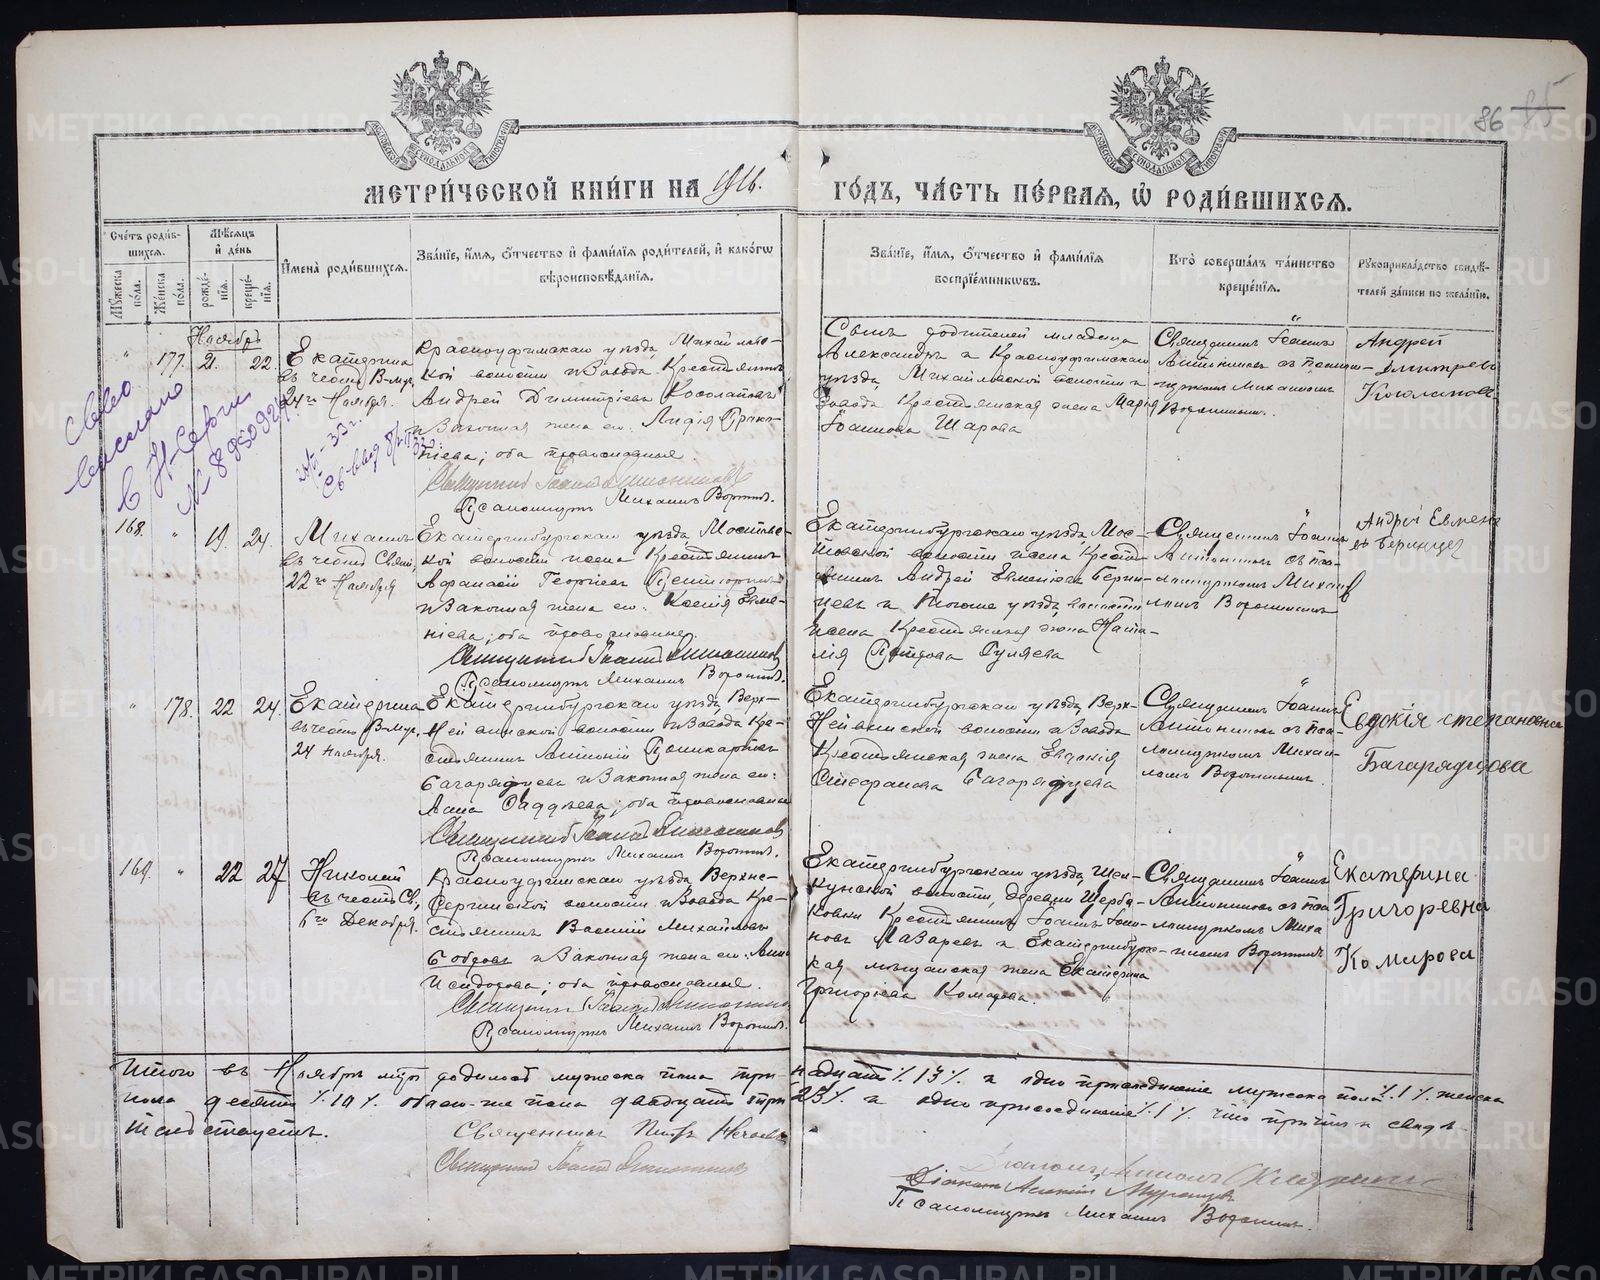 86 85
МЕТРИ́ЧЕСКОЙ КНИ́ГИ НА 1916.
ГО́ДЪ, ЧА́СТЬ ПЕ́РВАѦ, Ѡ҆ РОДИ́ВШИХСѦ.
Сче́тъ роди́в-
шихсѧ.
Мѣ́сѧцъ
и҆ де́нь
Мꙋ́жеска по́ла.
Же́нска по́ла.
рожде́-
нїѧ.
креще́-
нїѧ.
И҆мена̀ роди́вшихсѧ.
Зва́нїе, и҆́мѧ, ѻ҆́тчество и҆ фами́лїѧ роди́телей, и҆ како́гѡ
вѣроисповѣ́данїѧ.
Зва́нїе, и҆́мѧ, ѻ҆́тчество и҆ фами́лїѧ
воспрїе́мникѡвъ.
Кто̀ соверша́лъ та́инство
креще́нїѧ.
Рꙋкоприкла́дство свидѣ́-
телей за́писи по жела́нїю.
Ноябрь
" 177. 21. 22.
Екатерина
въ честь В-муч.
24го Ноября.
Красноуфимскаго уѣзда, Михайловс-
кой волости и завода Крестьянинъ
Андрей Димитріевъ Косолаповъ
и законная жена его: Лидія Проко-
піева; оба православные.
Священникъ Іоаннъ
Псаломщикъ Михаилъ Воронинъ.
Съемъ родителей младенца
Александръ и Красноуфимскаго
уѣзда, Михайловской волости и
завода Крестьянская жена Марія
Іоаннова Шарова
Священникъ Іоаннъ
съ псалом-
щикомъ Михаиломъ
Воронинымъ.
Андрей
Дмитрев
Косолапов
в Н-Серги
№ 8
33 г.
168. " 19. 24.
Михаилъ
въ честь Свящ.
22го Ноября
Екатеринбургскаго уѣзда, Мостовс-
кой волости и села Крестьянинъ
Афанасій Георгіевъ
и законная жена его: Ксенія Евме-
ніева; оба православные.
Священникъ Іоаннъ
Псаломщикъ Михаилъ Воронинъ.
Екатеринбургскаго уѣзда, Мос-
товской волости и села Крестья-
нинъ Андрей Евменіевъ Берин-
цевъ и Того же уѣзда, волости и
села Крестьянская жена Ната-
лія Петрова Гуляева
Священникъ Іоаннъ
съ пса-
ломщикомъ Михаи-
ломъ Воронинымъ
Андрей Евмене
в Беринцев
" 178. 22 24.
Екатерина
въ честь В-муч.
24 Ноября.
Екатеринбургскаго уѣзда, Верх-
Нейвинской волости и завода Кре-
стьянинъ Антоній Поликарповъ
Багарядцева и законная жена его:
Анна Фаддѣева; оба православные
Священникъ Іоаннъ
Псаломщикъ Михаилъ Воронинъ.
Екатеринбургскаго уѣзда Верх-
Нейвинской волости и завода
Крестьянская жена Евдокія
Стефанова Багарядцева
Священникъ Іоаннъ
съ пса-
ломщикомъ Михаи-
ломъ Воронинымъ.
Евдокія степановна
Багарядцова
169. " 22 27
Николай
въ честь Св.
6го Декабря.
Красноуфимскаго уѣзда Верхне-
Сергинской волости и завода Кре-
стьянинъ Василій Михайловъ
Бобровъ и законная жена его: Анна
Исидорова; оба православные.
Священникъ Іоаннъ
Псаломщикъ Михаилъ Воронинъ.
Екатеринбургскаго уѣзда Щел-
кунской волости, деревни Щерба-
ковки Крестьянинъ Іоаннъ Іоан-
новъ Лазаревъ и Екатеринбургс-
кая мѣщанская жена Екатерина
Григоріева Комарова.
Священникъ Іоаннъ
съ пса-
ломщикомъ Миха
иломъ Воронинымъ
Екатерина
Григоревна
Комарова
Итого въ Ноябрѣ мцѣ родилось мужеска пола три-
надцать /.13/. и одно присоединеніе мужеска пола /.1/. женска
пола десять /.10/. обоего-же пола двадцать три
23/. и одно присоединеніе /.1/. что причтъ и свидѣ-
тельствуетъ.
Священникъ Петръ Нечаевъ
Священникъ Іоаннъ
Діаконъ Алексій
Псаломщикъ Михаилъ Воронинъ.